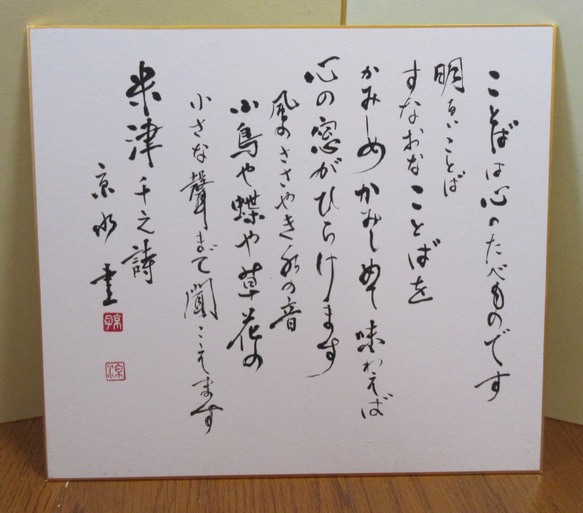 ことばは心のたべものです
明るいことば
すなおな ことばを
かみしめ かみしめて 味わえば
心の窓がひらけます
風のささやき 水の音
小鳥や蝶や草花の
小さな聲まで聞こえます
米津千之詩
京水書